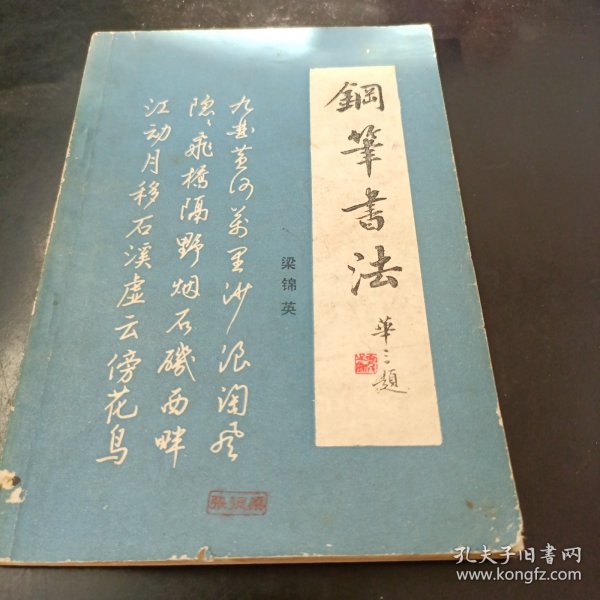 鋼筆書法
華三題
梁锦英
九曲黄河万里沙浪淘风
隐隐飞桥隔野烟石矶西畔
江动月移石溪虚云傍花鸟
孔夫子旧书网
www.kongfz.com